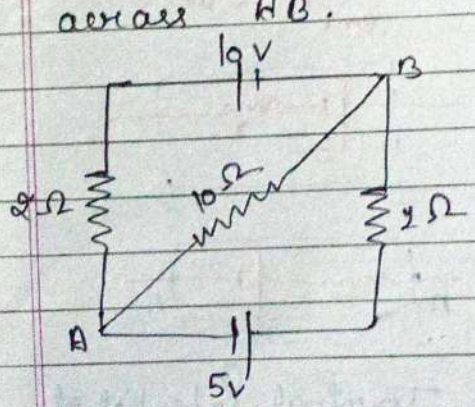 across AB.
10 V
B
2 Ω
10 Ω
2 Ω
A
5v